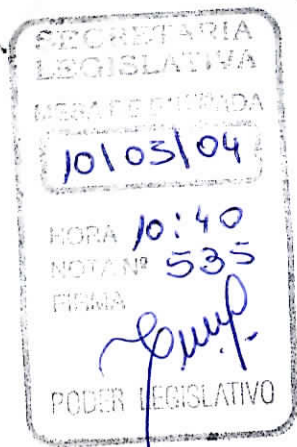 SECRETARIA
LEGISLATIVA
MESA DE ENTRADA
10/03/04
HORA 10:40
NOTA Nº 535
FIRMA
PODER LEGISLATIVO